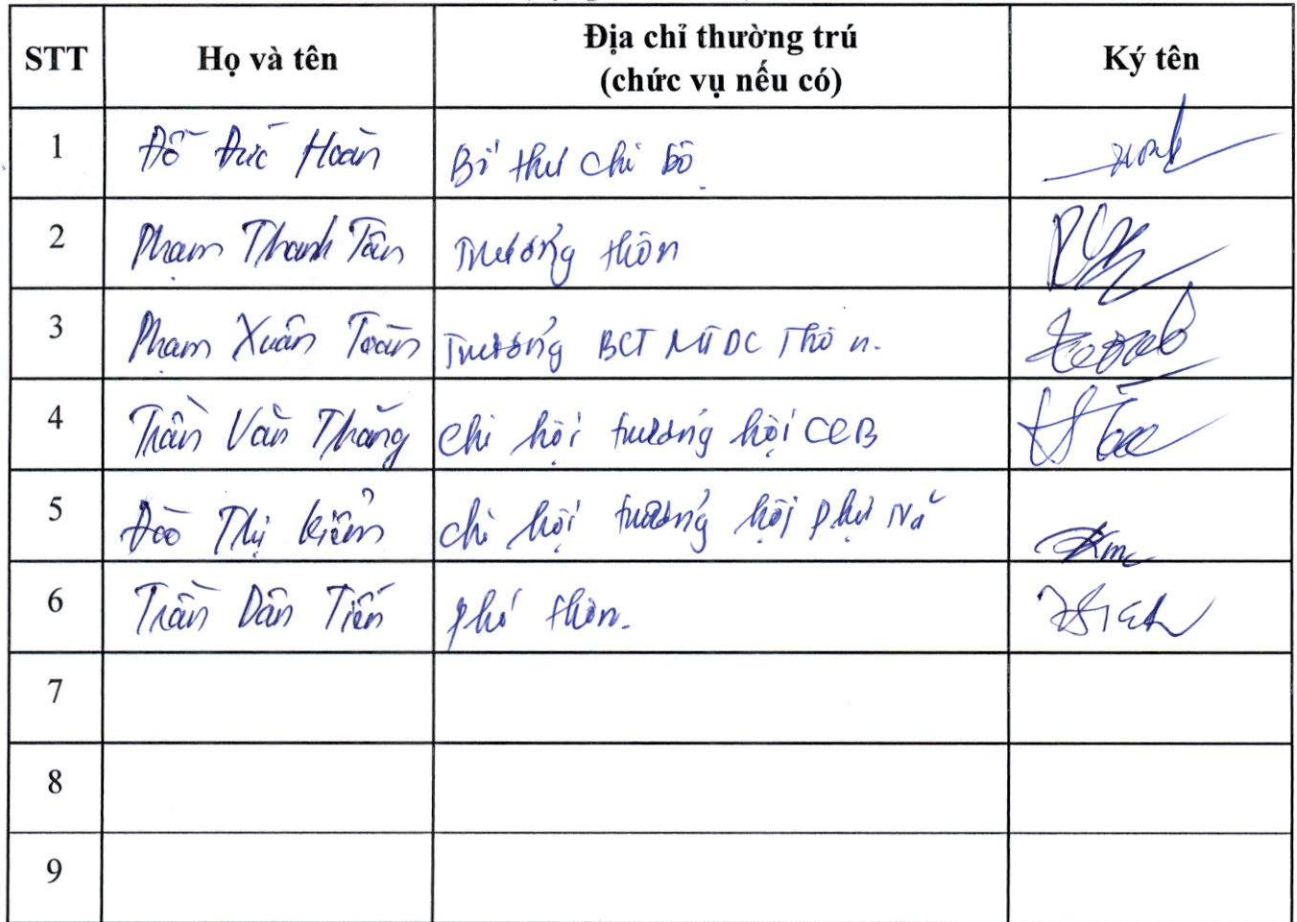 STT Họ và tên Địa chỉ thường trú (chức vụ nếu có) Ký tên
1 Đỗ Đức Hoàn Bí thư chi bộ
2 Phạm Thanh Tân Trưởng thôn
3 Phạm Xuân Toàn Trưởng BCT MTDC Thôn.
4 Trần Văn Thắng chi hội trưởng hội CCB
5 Đào Thị Kiểm chi hội trưởng hội phụ Nữ
6 Trần Dân Tiến phó thôn.
7
8
9